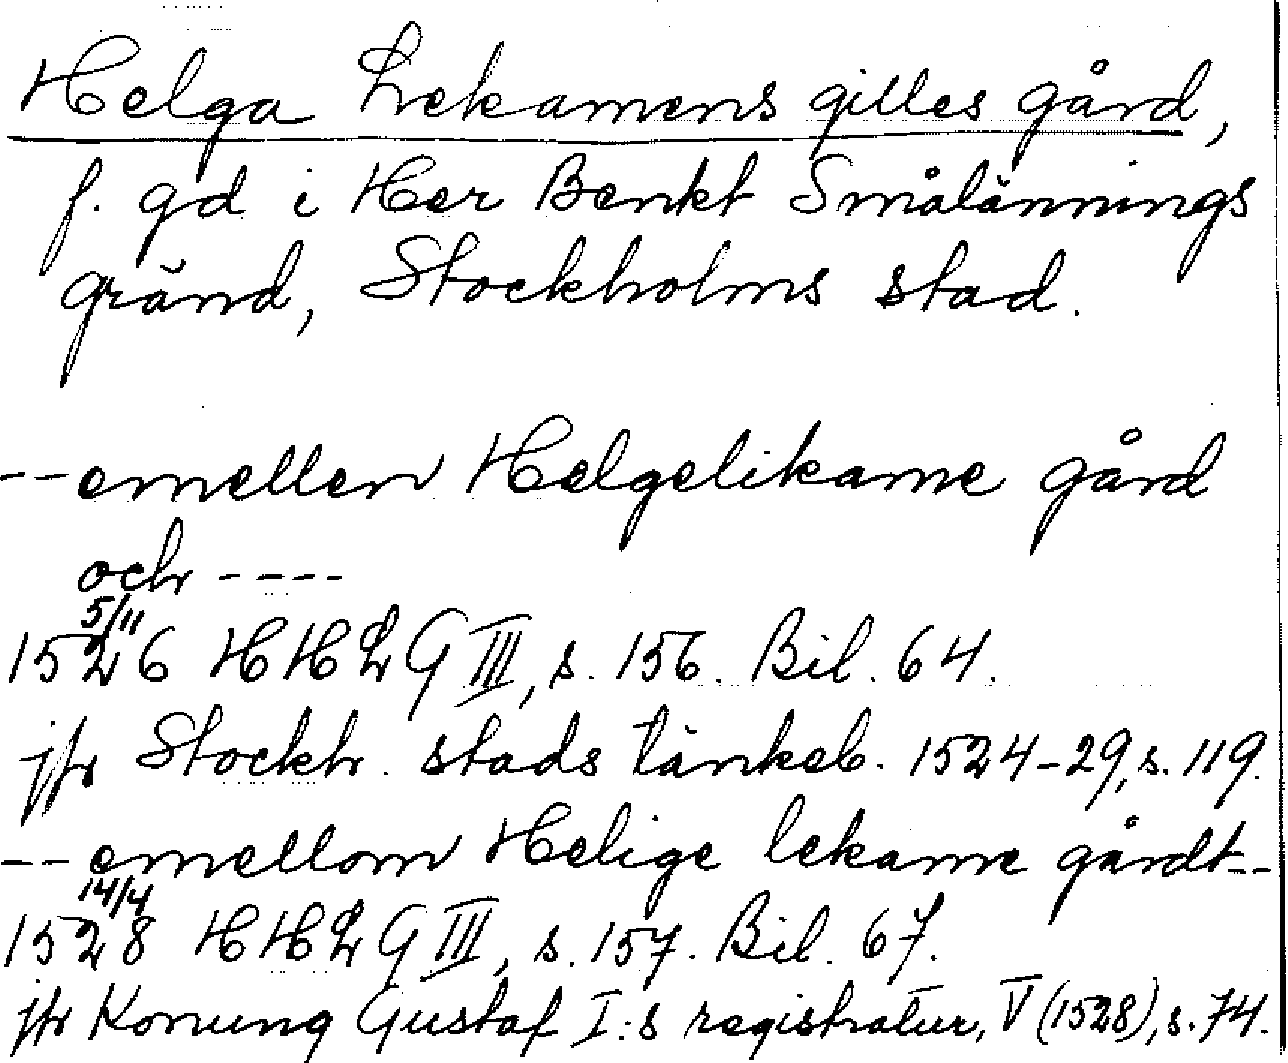 Helga Lekamens gilles gård,
f. gd i Her Benkt Smålännings
gränd, Stockholms stad.
--emellen Helgelikame gård
och ----
5/11
1526 HHLG III, s. 156. Bil. 64.
jfr Stockh. stads tänkeb. 1524-29, s. 119.
--emellom Helige lekame gårdt--
14/4
1528 HHLG III, s. 157. Bil. 67.
jfr Konung Gustaf I:s registratur, V (1528), s. 74.